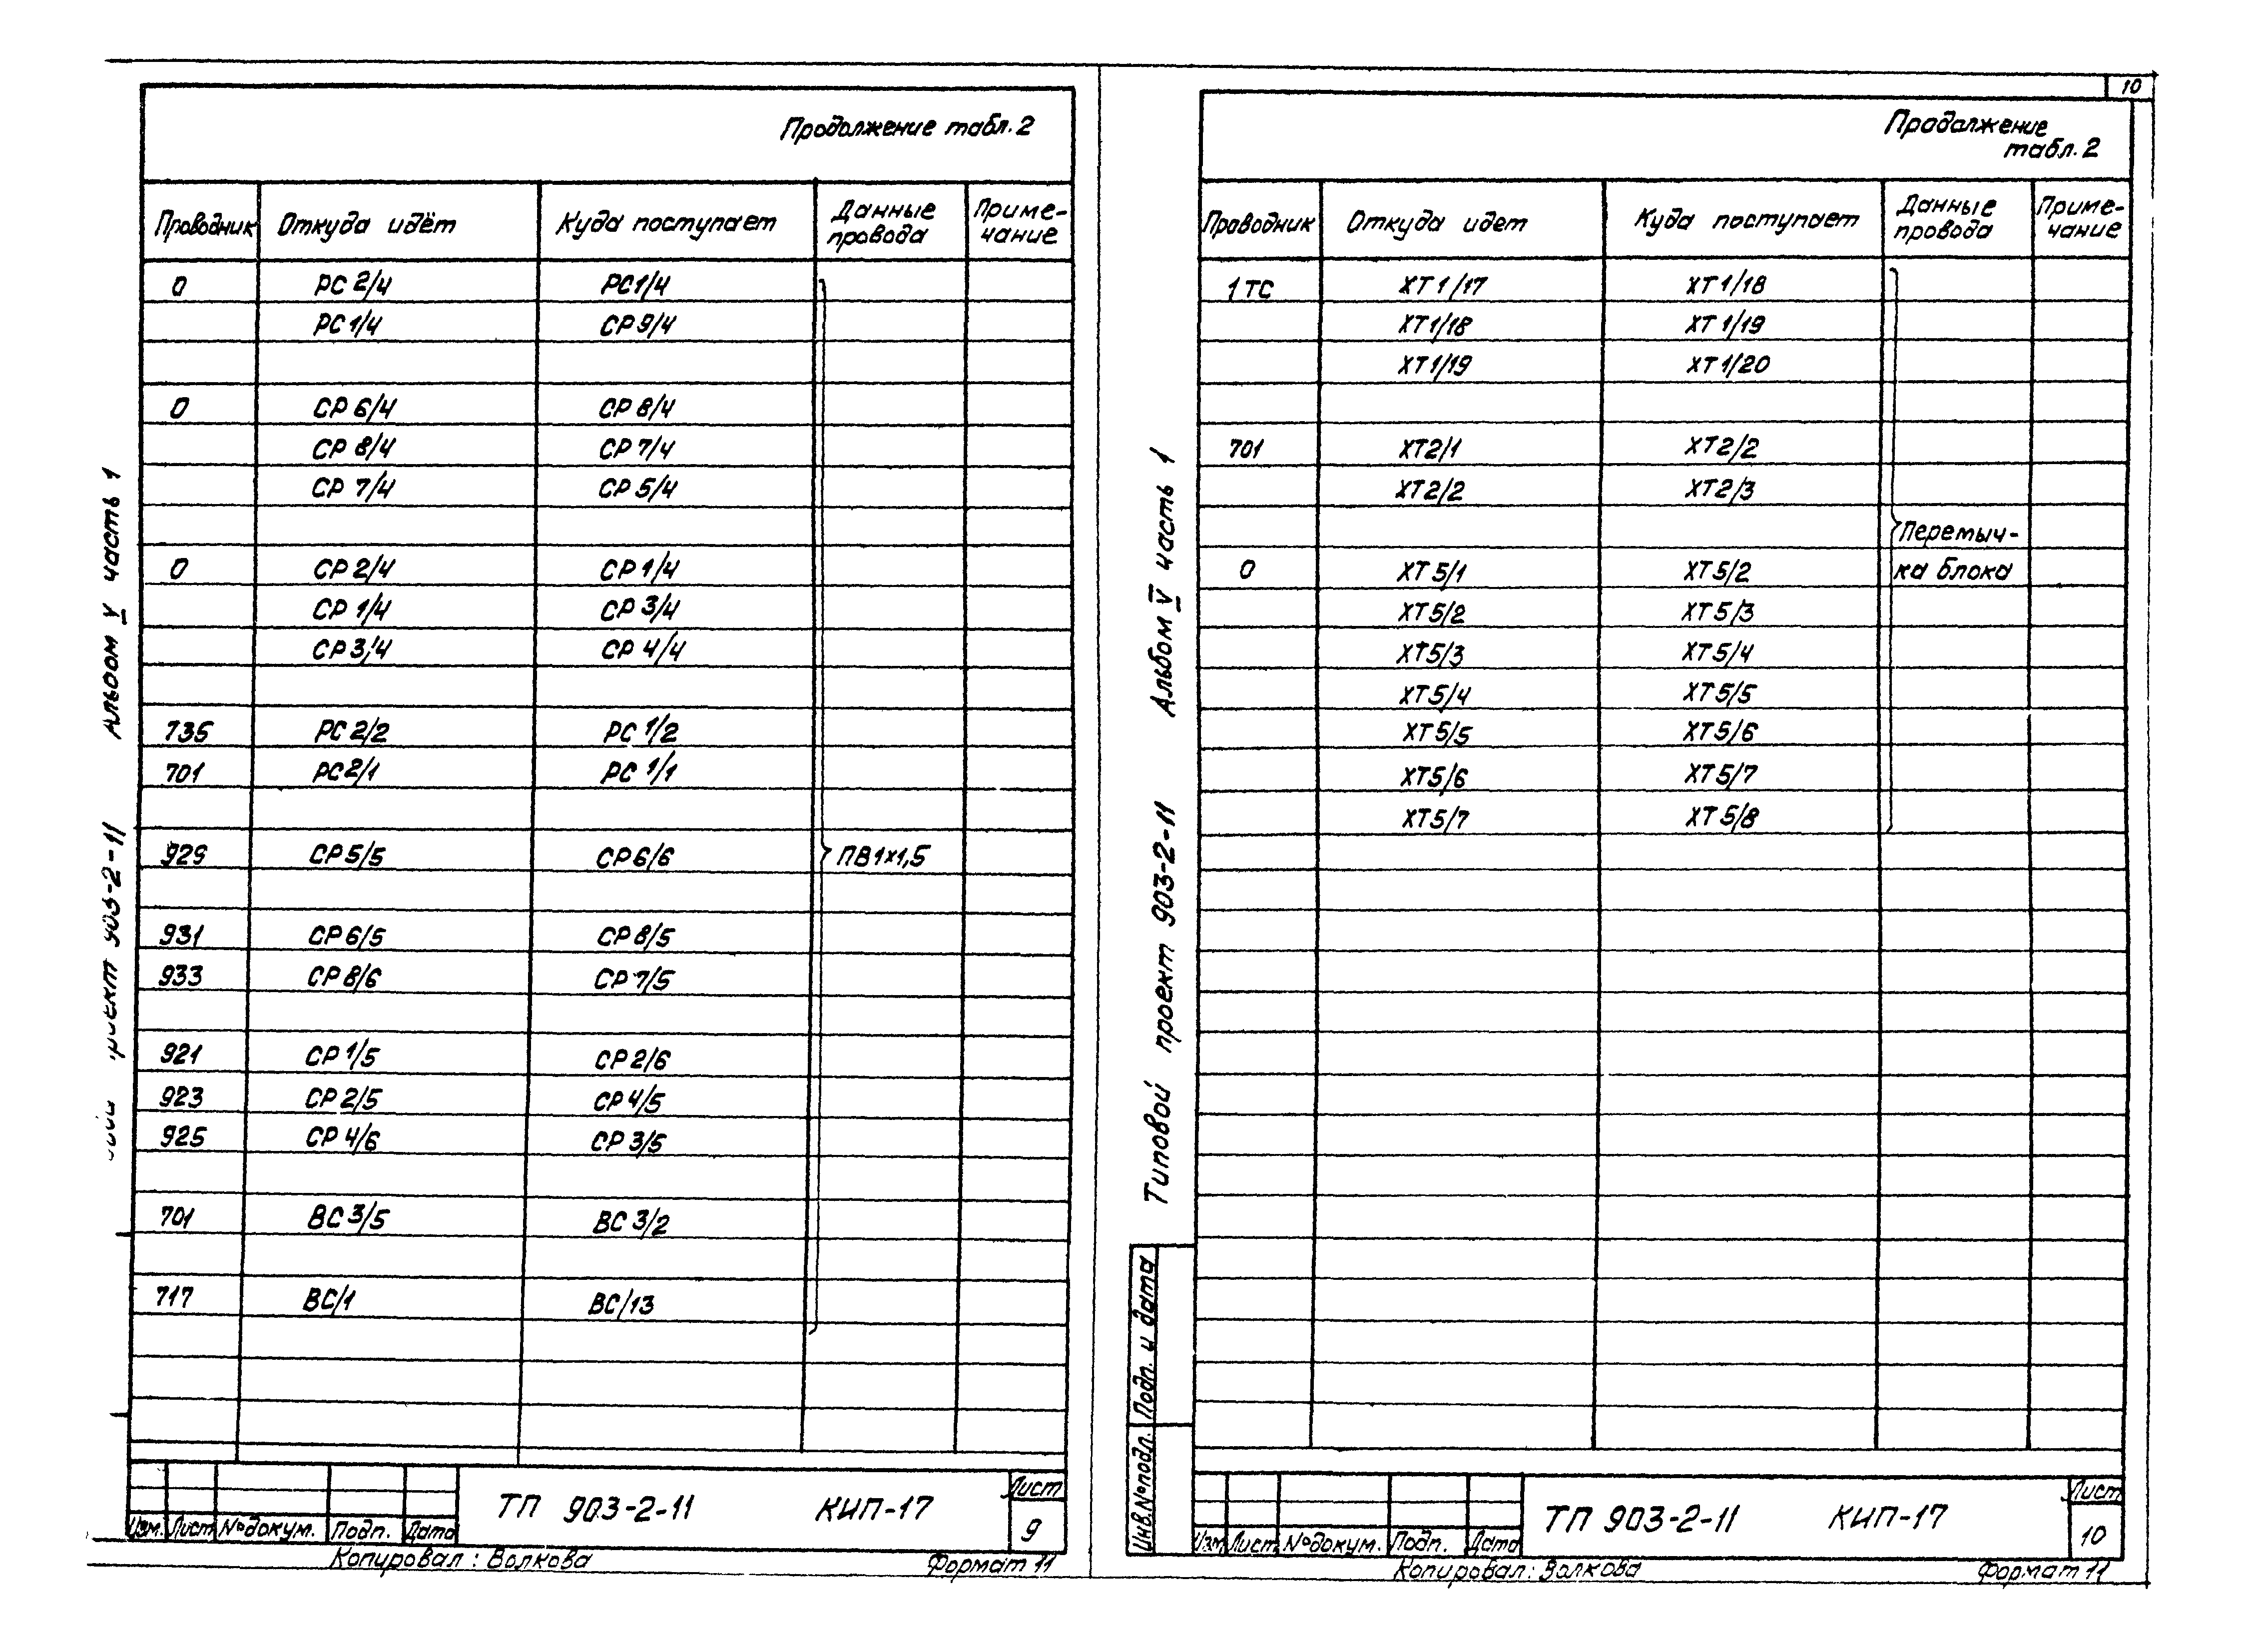 Продолжение табл. 2
Проводник Откуда идёт Куда поступает Данные провода Приме-чание
0 РС 2/4 РС1/4
РС 1/4 СР 9/4
0 СР 6/4 СР 8/4
СР 8/4 СР 7/4
СР 7/4 СР 5/4
0 СР 2/4 СР 1/4
СР 1/4 СР 3/4
СР 3/4 СР 4/4
735 РС 2/2 РС 1/2
701 РС 2/1 РС 1/1
929 СР 5/5 СР 6/6 ПВ1х1,5
931 СР 6/5 СР 8/5
933 СР 8/6 СР 7/5
921 СР 1/5 СР 2/6
923 СР 2/5 СР 4/5
925 СР 4/6 СР 3/5
701 ВС 3/5 ВС 3/2
717 ВС/1 ВС/13
Альбом V часть 1
проект 903-2-11
Изм. Лист №докум. Подп. Дата
ТП 903-2-11 КИП-17
Лист
9
Копировал: Волкова Формат 11
10
Продолжение
табл. 2
Проводник Откуда идет Куда поступает Данные провода Приме-чание
1ТС ХТ1/17 ХТ1/18
ХТ1/18 ХТ1/19
ХТ1/19 ХТ1/20
701 ХТ2/1 ХТ2/2
ХТ2/2 ХТ2/3
Перемыч-
0 ХТ5/1 ХТ5/2 ка блока
ХТ5/2 ХТ5/3
ХТ5/3 ХТ5/4
ХТ5/4 ХТ5/5
ХТ5/5 ХТ5/6
ХТ5/6 ХТ5/7
ХТ5/7 ХТ5/8
Типовой проект 903-2-11 Альбом V часть 1
Инв.№подл. Подп. и дата
Изм. Лист №докум. Подп. Дата
ТП 903-2-11 КИП-17
Лист
10
Копировал: Волкова Формат 11